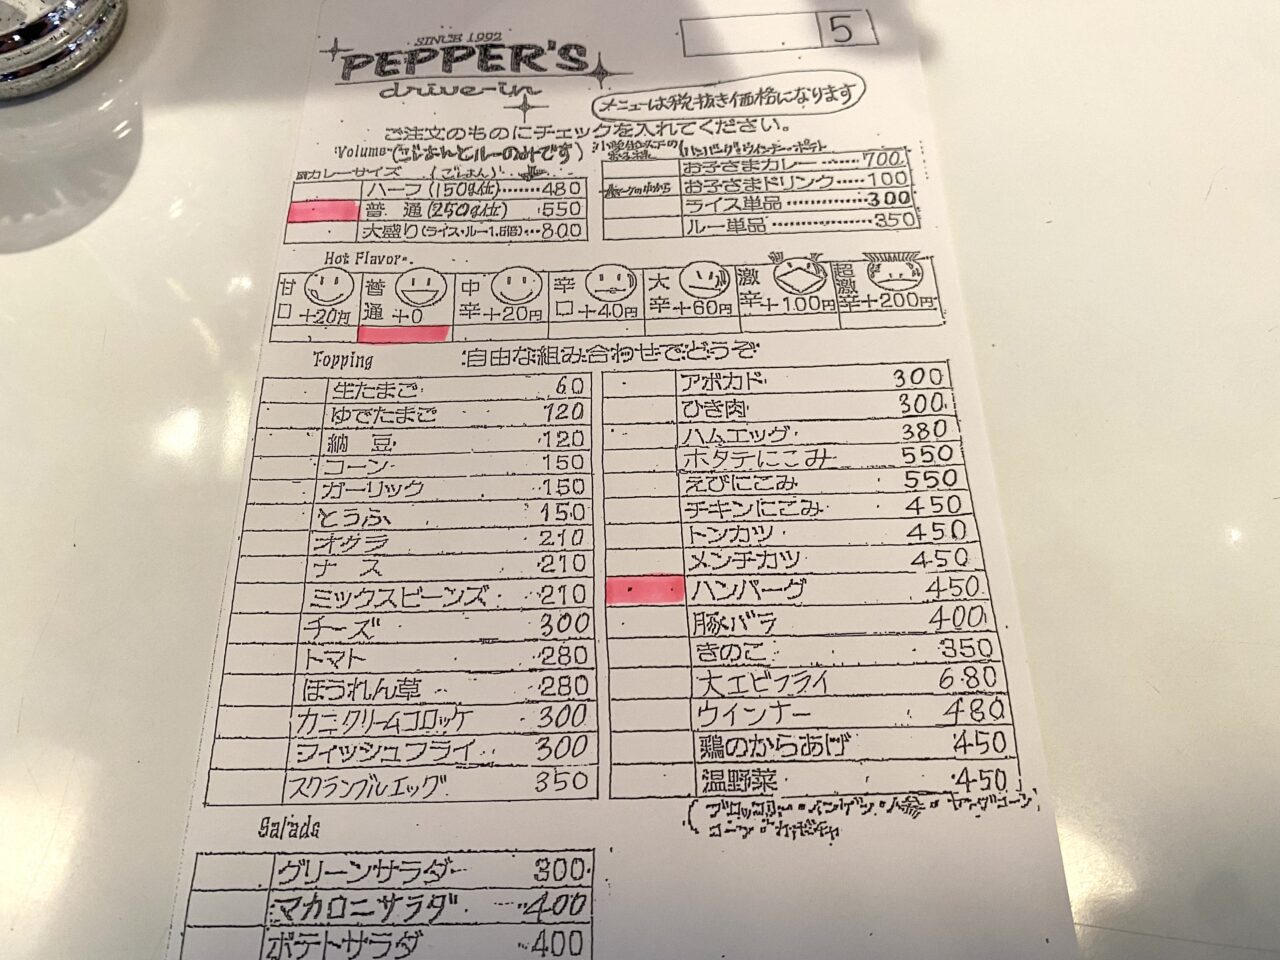 SINCE 1992
PEPPER'S
drive-in
5
メニューは税抜き価格になります
ご注文のものにチェックを入れてください。
Volume(ごはんとルーのみです)
カレーサイズ (ごはん)
ハーフ(150g位)……480
普通(250g位) 550
大盛り(ライス・ルー1.5倍)…800
(ハンバーグ・ウインナー・ポテト
お子さまカレー……700
お子さまドリンク……100
ライス単品……300
ルー単品……350
Hot Flavor
甘口 +20円
普通 +0
中辛 +20円
辛口 +40円
大辛 +60円
激辛 +100円
超激辛 +200円
Topping 自由な組み合わせでどうぞ
生たまご 60
ゆでたまご 120
納豆 120
コーン 150
ガーリック 150
とうふ 150
オクラ 210
ナス 210
ミックスビーンズ 210
チーズ 300
トマト 280
ほうれん草 280
カニクリームコロッケ 300
フィッシュフライ 300
スクランブルエッグ 350
アボカド 300
ひき肉 300
ハムエッグ 380
ホタテにこみ 550
えびにこみ 550
チキンにこみ 450
トンカツ 450
メンチカツ 450
ハンバーグ 450
豚バラ 400
きのこ 350
大エビフライ 680
ウインナー 480
鶏のからあげ 450
温野菜 450
Salads
グリーンサラダ 300
マカロニサラダ 400
ポテトサラダ 400